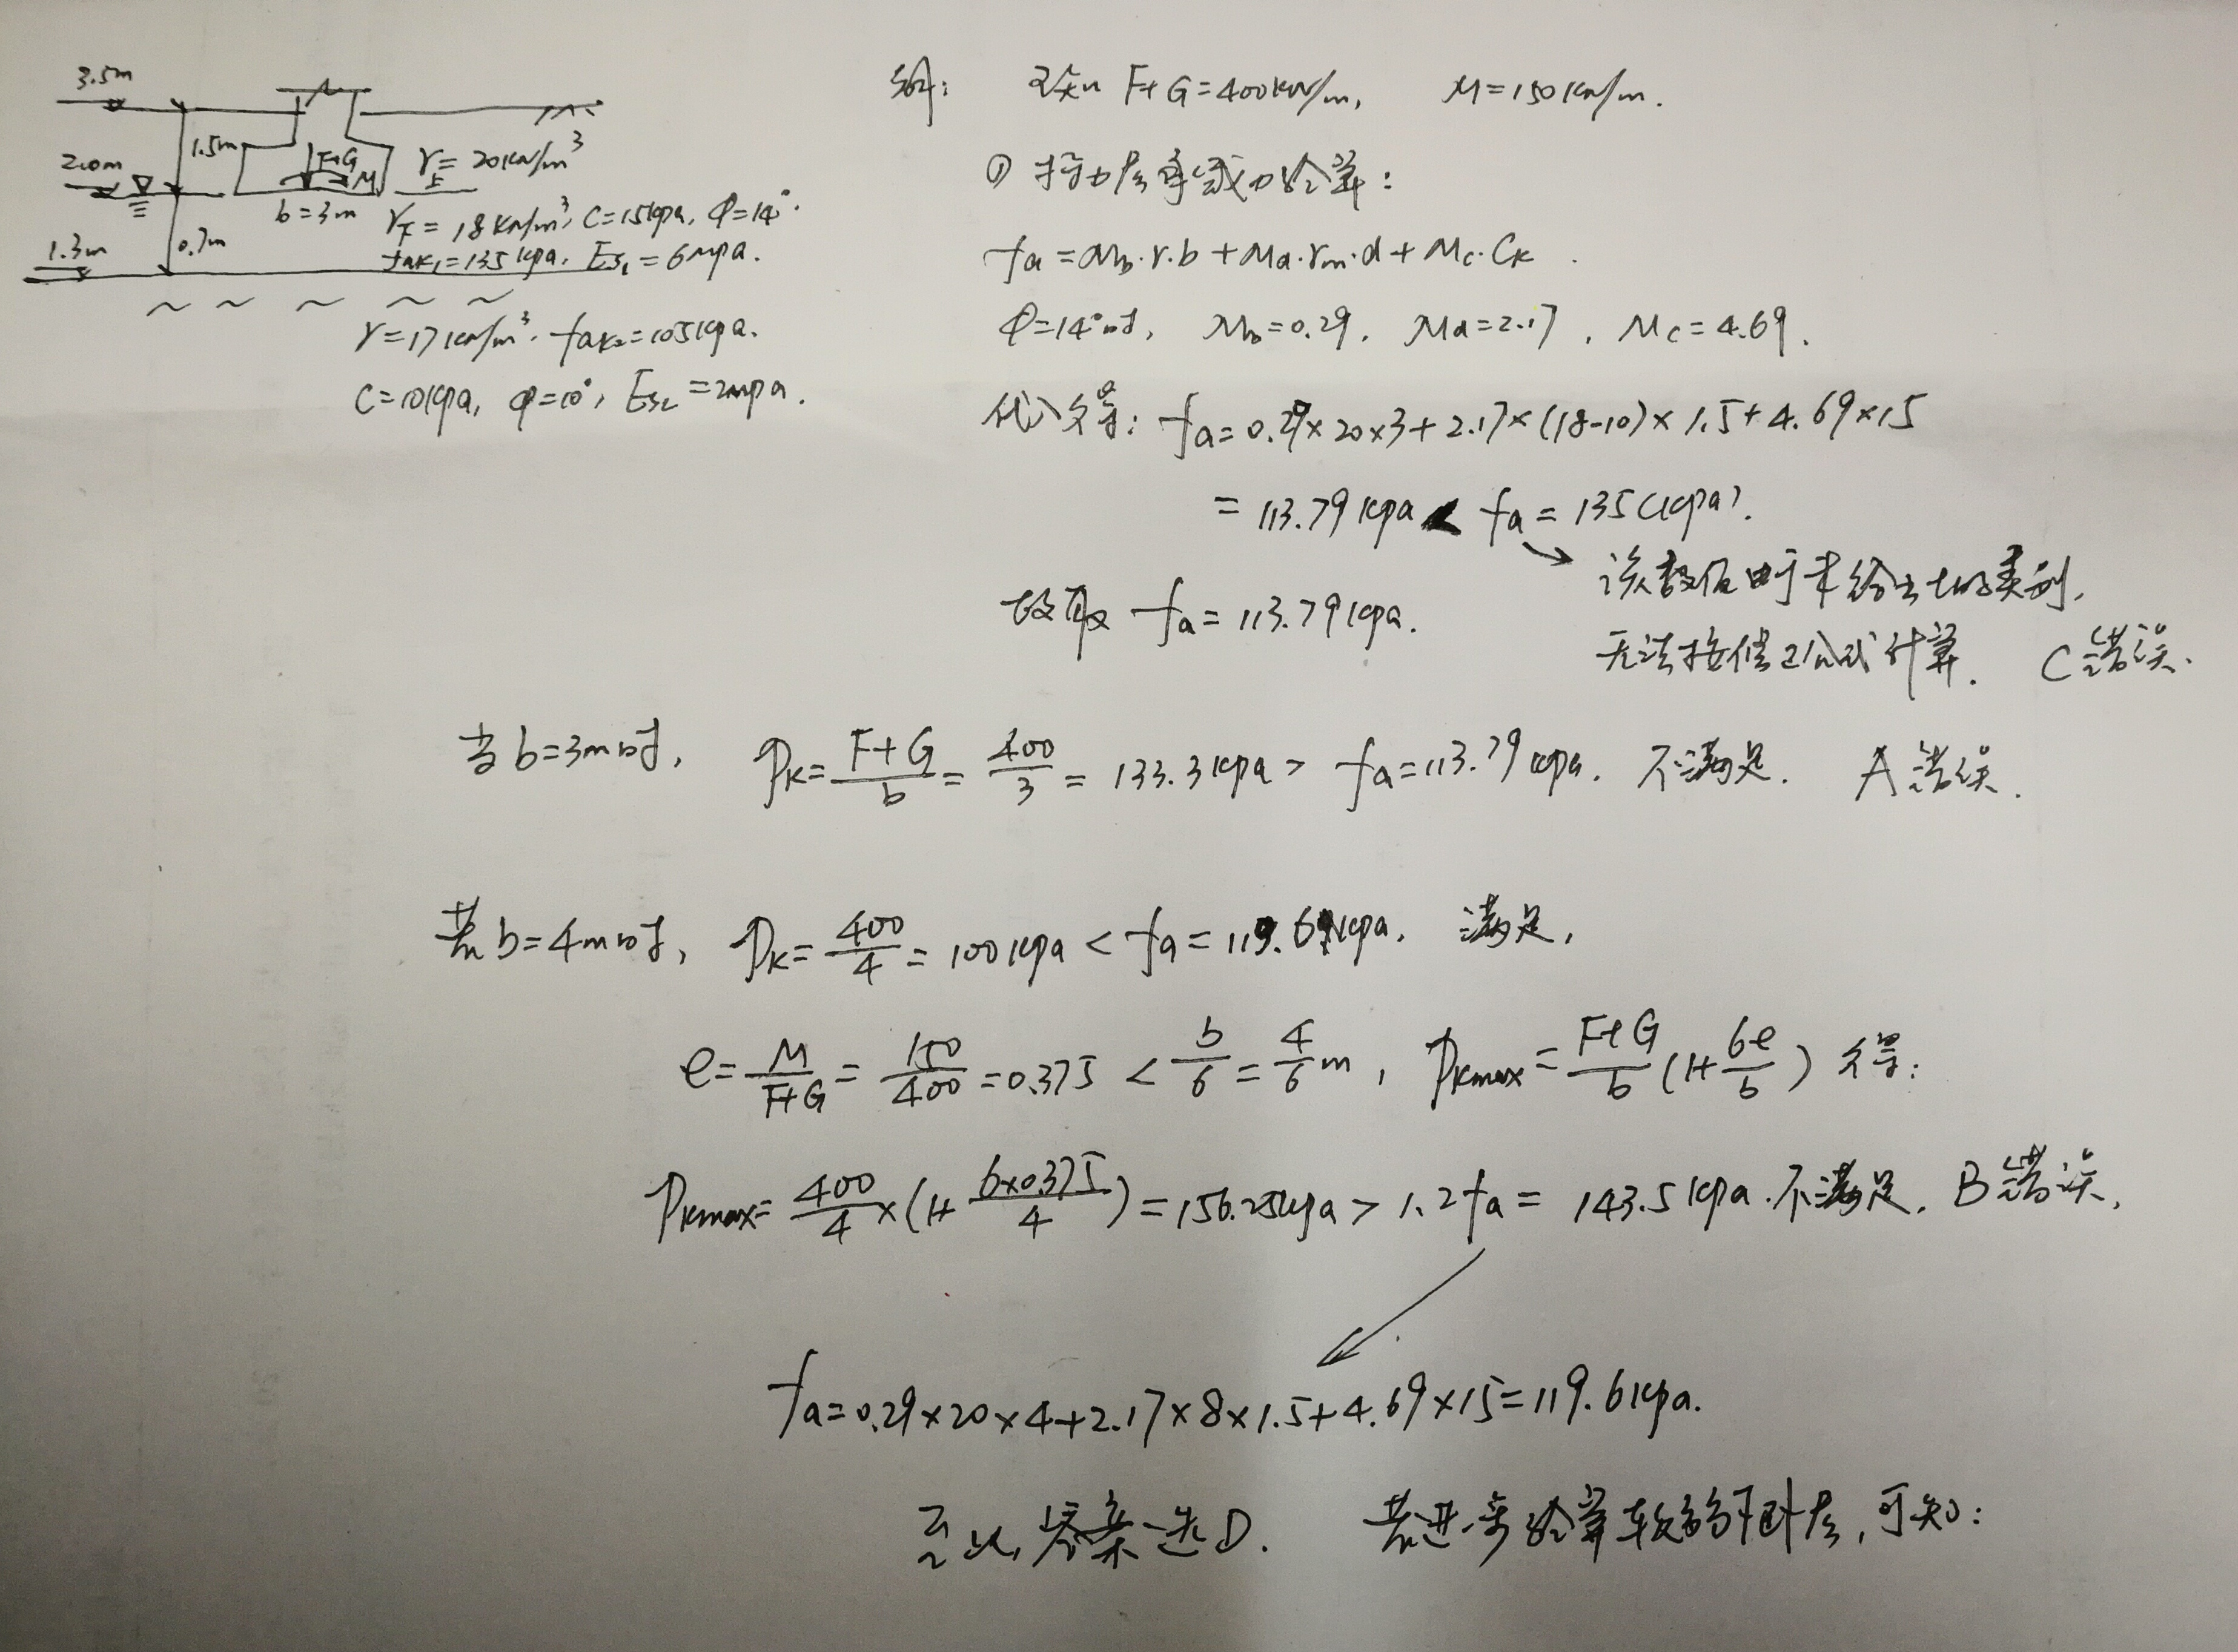 3.5m
1.5m
2.0m
F+G
M
γ上=20KN/m³
b=3m
γ下=18KN/m³, C=15kpa, φ=14°.
1.3m
0.7m
fak₁=135kpa. Es₁=6mpa.
γ=17KN/m³. fak₂=105kpa.
C=10kpa, φ=10°, Es₂=2mpa.
解: 已知 F+G=400KN/m, M=150KN/m.
① 持力层承载力验算:
fa=Mb·γ·b+Md·γm·d+Mc·Ck.
φ=14°时, Mb=0.29, Md=2.17, Mc=4.69.
代入得: fa=0.29×20×3+2.17×(18-10)×1.5+4.69×15
=113.79kpa < fa=135(kpa).
该数值由于未给出土的类别,
故取 fa=113.79kpa.
无法按修正公式计算. C错误.
当b=3m时, Pk=F+G/b=400/3=133.3kpa> fa=113.79kpa. 不满足. A错误.
若b=4m时, Pk=400/4=100kpa<fa=119.6kpa. 满足,
e=M/F+G=150/400=0.375<b/6=4/6m, Pkmax=F+G/b(1+6e/b) 得:
Pkmax=400/4×(1+6×0.375/4)=156.25kpa>1.2fa=143.5kpa.不满足. B错误.
fa=0.29×20×4+2.17×8×1.5+4.69×15=119.6kpa.
至此,答案选D. 若进一步验算软弱下卧层,可知: